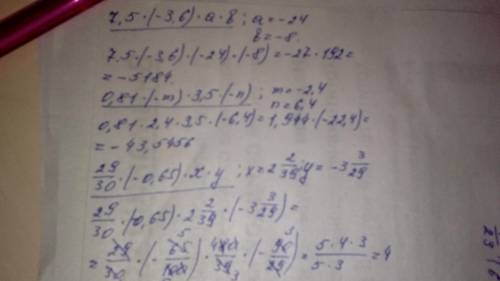 7,5·(-3,6)·a·b ; a=-24
b=-8.
7,5·(-3,6)·(-24)·(-8)=-27·192=
=-5184.
0,81·(-m)·3,5·(-n) ; m=-2,4
n=6,4
0,81·2,4·3,5·(-6,4)=1,944·(-22,4)=
=-43,5456
29/30·(-0,65)·x·y ; x=2 2/39; y=-3 3/29
29/30·(-0,65)·2 2/39·(-3 3/29)=
=29/30·(-65/100)·80/39·(-90/29)=5·4·3/5·3=4